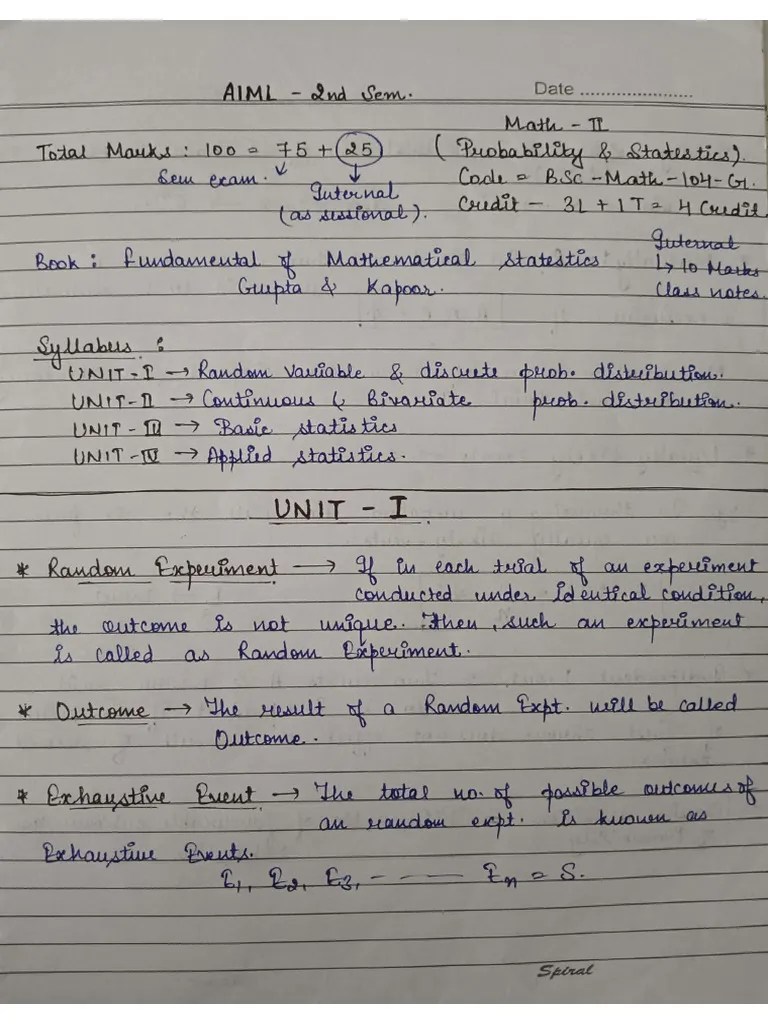 AIML - 2nd Sem.
Date ......................
Math - II
Total Marks : 100 = 75 + 25 ( Probability & Statestics).
Sem exam. Internal Code = BSc - Math - 104 - G.
(as sessional). Credit - 3L + 1T = 4 Credit.
Book : Fundamental of Mathematical Statestics
Gupta & Kapoor.
Internal
↳ 10 Marks
Class notes.
Syllabus :
UNIT - I → Random Variable & discrete prob. distribution.
UNIT - II → Continuous & Bivariate prob. distribution.
UNIT - III → Basic statistics
UNIT - IV → Applied statistics.
UNIT - I
* Random Experiment → If in each trial of an experiment
conducted under identical condition,
the outcome is not unique. Then, such an experiment
is called as Random Experiment.
* Outcome → The result of a Random Expt. will be called
Outcome.
* Exhaustive Event → The total no. of possible outcomes of
an random expt. is known as
Exhaustive Events.
E1, E2, E3, - - - - En = S.
Spiral